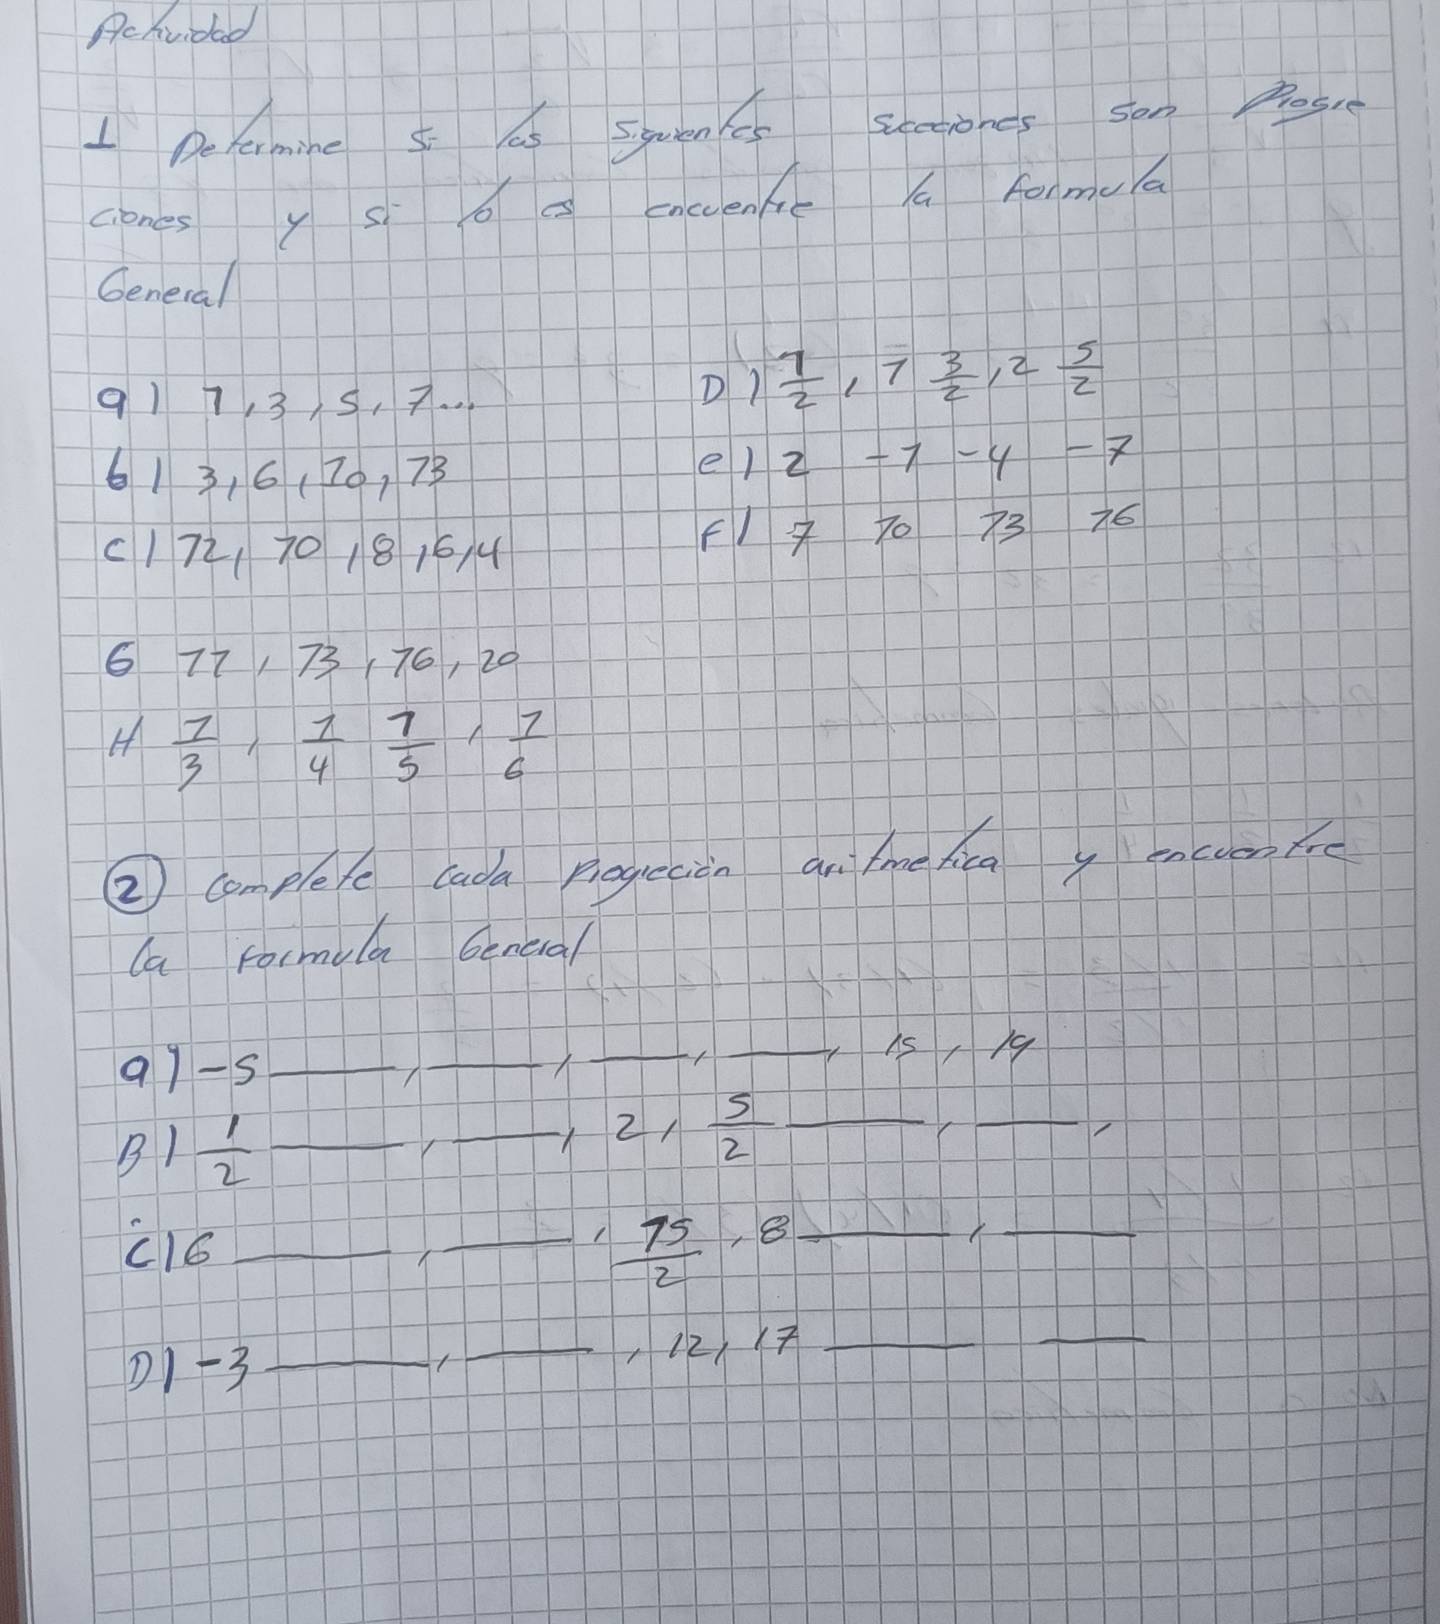 Actividad
1 Determine si las siguientes secciones son Progre
ciones y si lo es encuentre la formula
General
a) 1, 3, 5, 7... D) 1/2, 1 3/2, 2 5/2
b) 3, 6, 10, 13 e) 2 -1 -4 -7
c) 12, 10, 8, 6, 4 F) 7 10 13 16
G 11, 13, 16, 20
H 1/3, 1/4 1/5, 1/6
② complete cada progreción aritmetica y encuentre
la formula General
a) -5 ____, ____, ____, ____, 15, 19
B) 1/2 ____, ____, 2, 5/2 ____, ____,
c) 6 ____, ____, 15/2, 8 ____, ____
D) -3 ____, ____, 12, 17 ____ ____